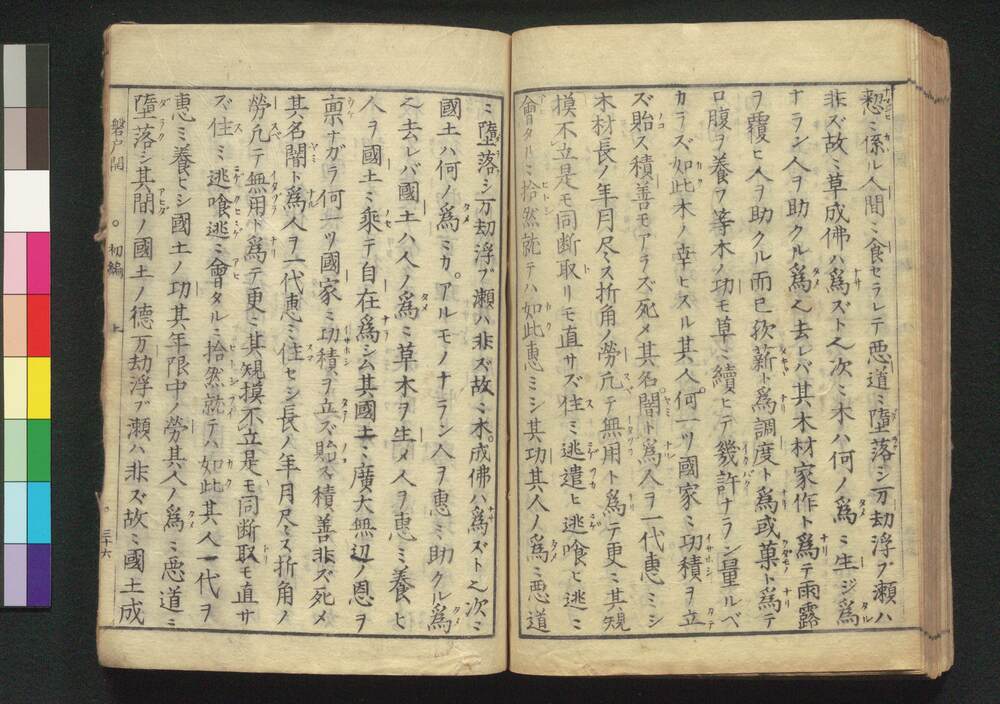 惒ミ係ル人間ミ食セラレテ悪道ミ墮落シ万劫浮ブ瀬ハ
非ズ故ミ草成佛ハ爲ズト乀次ミ木ハ何ノ爲ミ生ジ爲
ナラン人ヲ助クル爲乀去レバ其木材家作ト爲テ雨露
ヲ覆ヒ人ヲ助クル而已欤薪ト爲調度ト爲或菓ト爲テ
口腹ヲ養フ等木ノ功モ草ミ續ヒテ幾許ナラン量ルベ
カラズ如此木ノ幸ヒスル其人何一ツ國家ミ功積ヲ立
ズ貽ス積善モアラズ死メ其名闇ト爲人ヲ一代惠ミシ
木材長ノ年月尽ミス折角ノ勞凢テ無用ト爲テ更ミ其規
摸不立是モ同断取リモ直サズ住ミ逃遣ヒ逃喰ヒ逃ミ
會タルミ拾然就テハ如此惠ミシ其功其人ノ爲ミ悪道
ミ墮落シ万劫浮ブ瀬ハ非ズ故ミ木成佛ハ爲ズト乀次ミ
國土ハ何ノ爲ミカアルモノナラン人ヲ惠ミ助クル爲
乀去レバ國土ハ人ノ爲ミ草木ヲ生メ人ヲ惠ミ養ヒ
人ヲ國土ミ乘テ自在爲シム其國土ミ廣大無辺ノ恩ヲ
禀ナガラ何一ツ國家ミ功積ヲ立ズ貽ス積善非ズ死メ
其名闇ト爲人ヲ一代惠ミ住セシ長ノ年月尽ミス折角ノ
勞凢テ無用ト爲テ更ミ其規摸不立是モ同断取モ直サ
ズ住ミ逃喰逃ミ會タルミ拾然就テハ如此其人一代ヲ
惠ミ養ヒシ國土ノ功其年限中ノ勞其人ノ爲ミ悪道ミ
墮落シ其間ノ國土ノ德万劫浮ブ瀬ハ非ズ故ミ國土成
磐戸開 ○初編 上 三十六